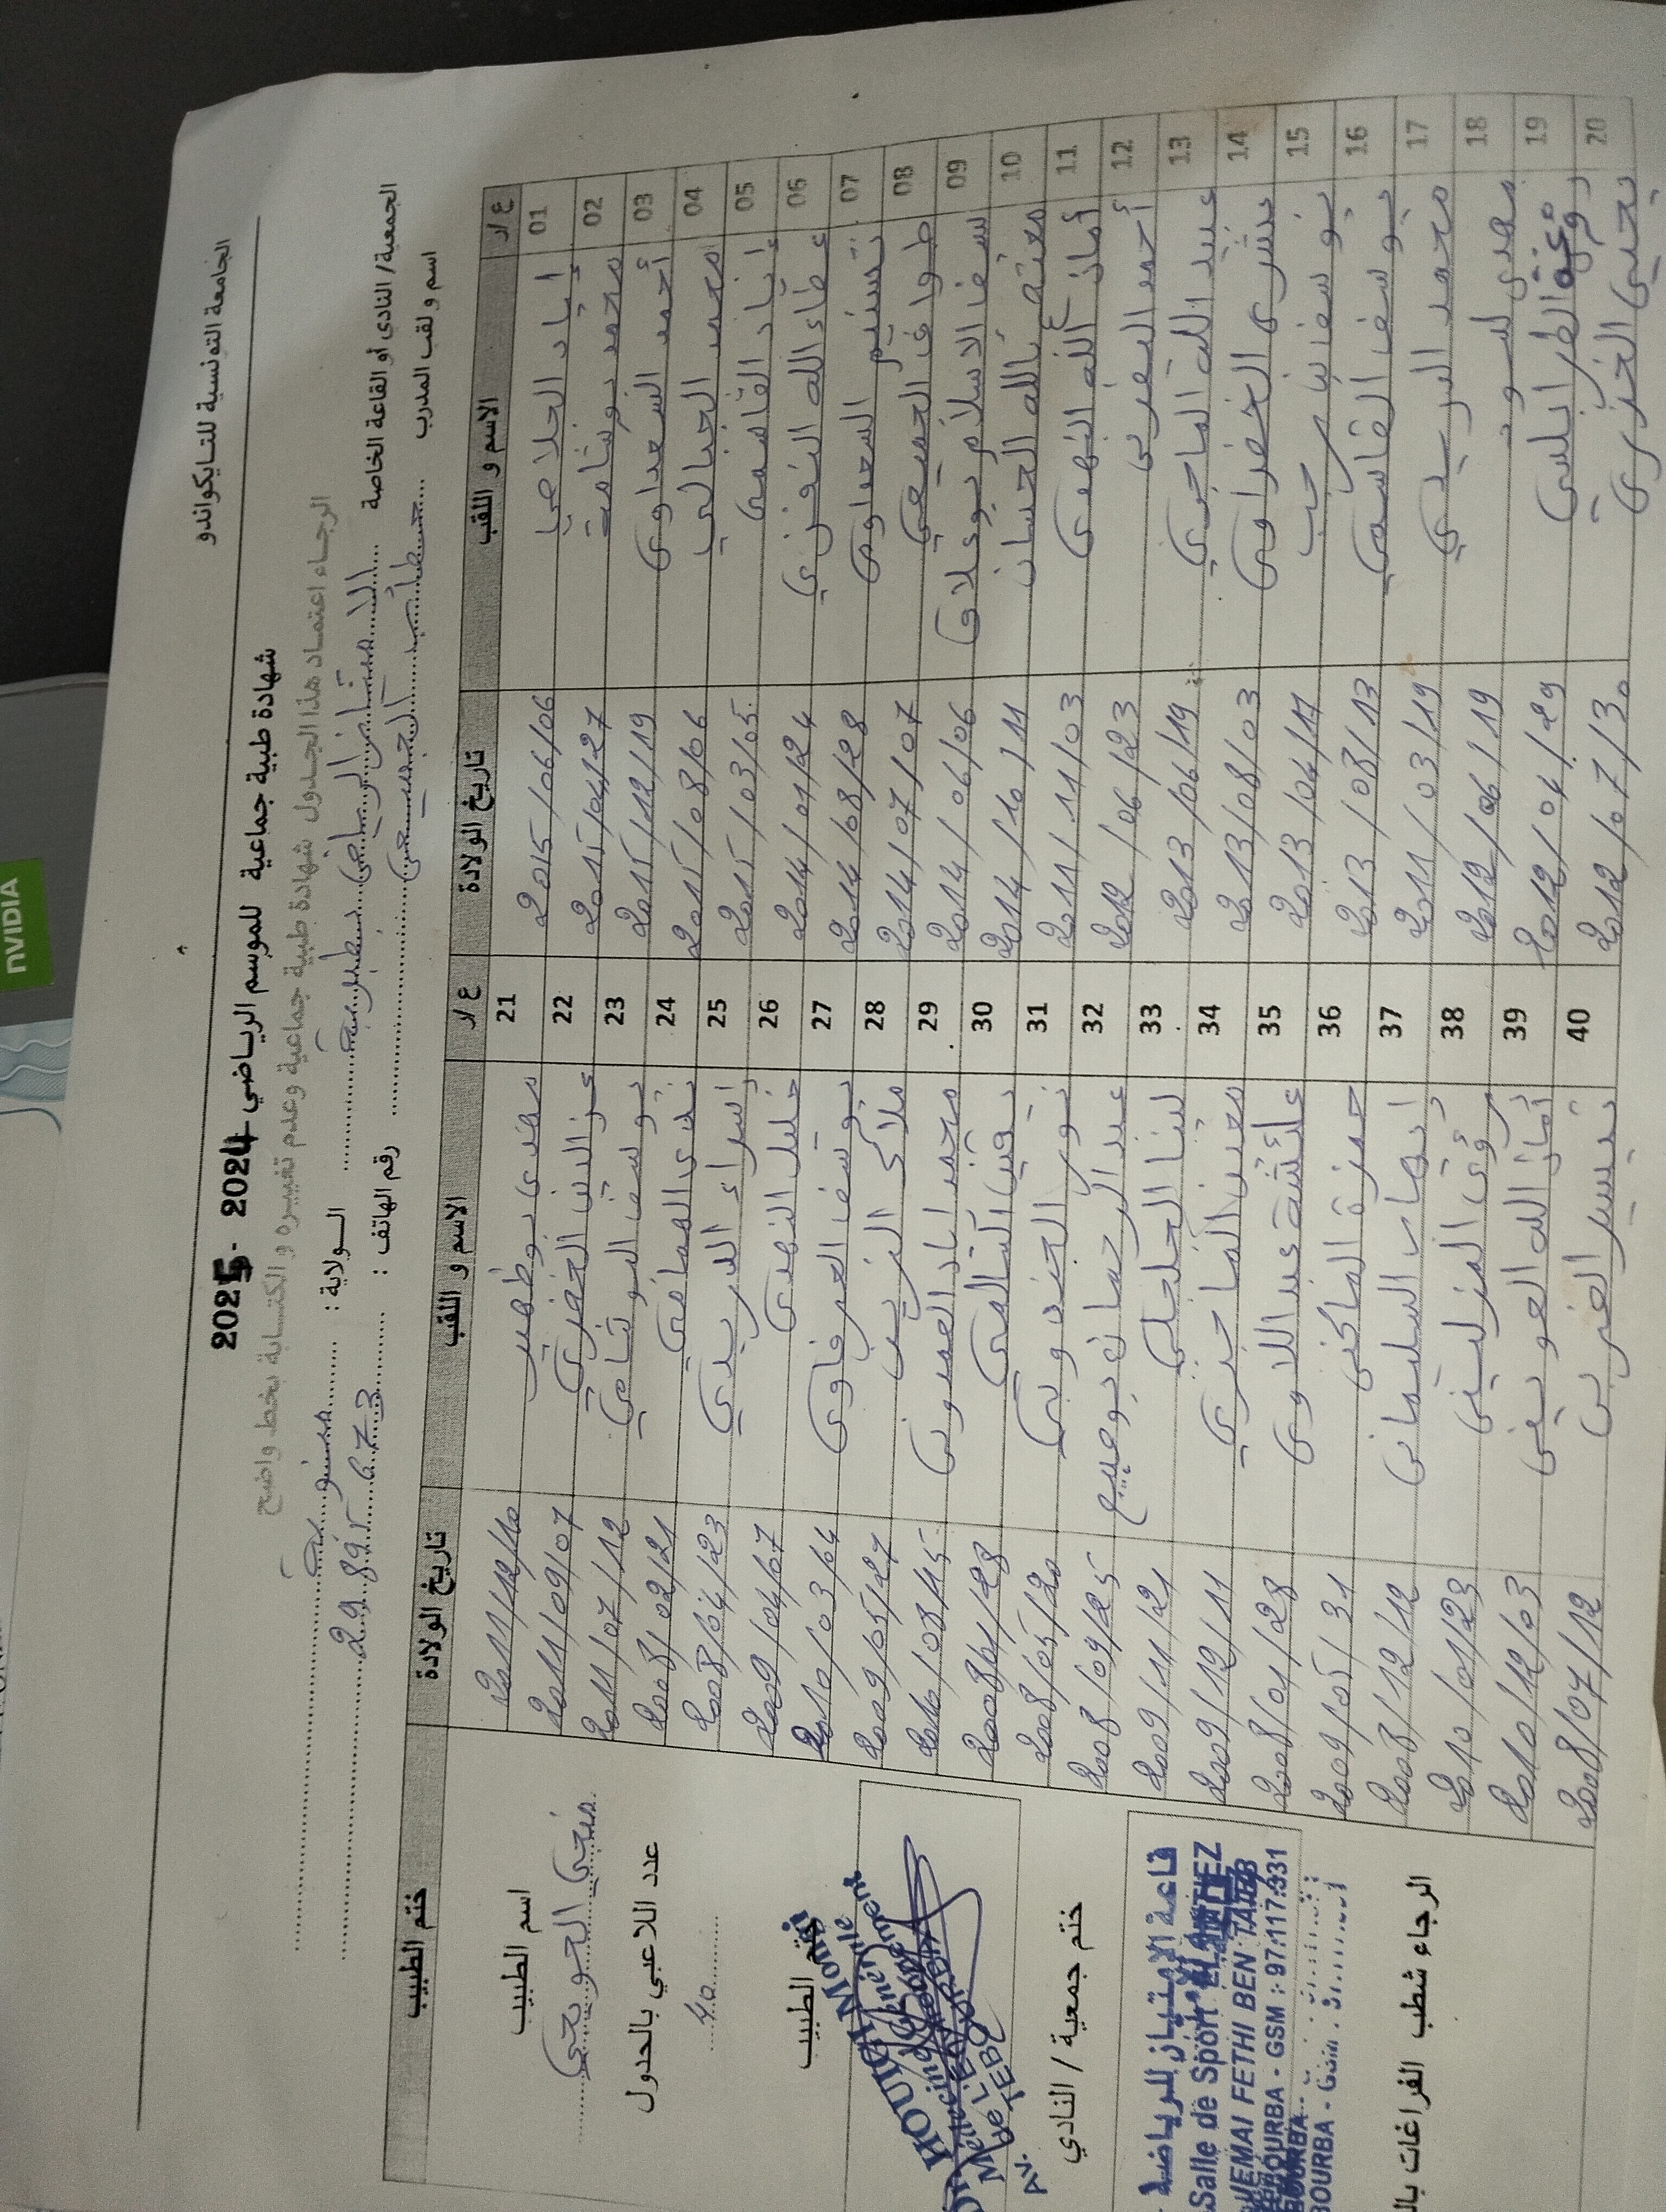 الجامعة التونسية للتايكواندو
شهادة طبية جماعية للموسم الرياضي 2024 - 2025
الرجاء اعتماد هذا الجدول شهادة طبية جماعية وعدم تغييره و الكتابة بخط واضح
الجمعية/ النادي أو القاعة الخاصة الامتياز الرياضي بطبربة الولاية : منوبة
اسم و لقب المدرب طارق الجميعي رقم الهاتف : 29 895 673
ع/ر الاسم و اللقب تاريخ الولادة ع/ر الاسم و اللقب تاريخ الولادة ختم الطبيب
01 إياد الجلاصي 2015/06/06 21 مهدي بوظهير 2011/12/10
02 محمد بوشامة 2015/04/27 22 عز الدين الخضري 2011/09/07
03 أحمد السعداوي 2015/12/19 23 يوسف البوثامي 2011/07/12
04 محمد الجبالي 2015/08/06 24 ندى المعافي 2008/02/21
05 إياد القاسمي 2015/03/05 25 إسراء الدريدي 2008/04/23
06 عطاء الله النفزي 2014/01/24 26 خليل النهدي 2009/04/07
07 تسنيم السعداوي 2014/08/28 27 يوسف العرفاوي 2010/03/04
08 طواف الجميعي 2014/07/07 28 ملاك الغربي 2009/05/27
09 سيف الاسلام بوعلاق 2014/06/06 29 محمد اياد العمدوني 2010/08/15
10 معتصم بالله الحسان 2014/10/11 30 يقين السالمي 2008/01/28
11 أمان الله النهدي 2011/11/03 31 نور الجندوبي 2008/05/20
12 أحمد المغربي 2012/06/23 32 عبد الرحمان بوعصيدة 2008/09/25
13 عبد الله الماجري 2013/06/19 33 لينا الجلجلي 2009/11/21
14 بشرى الخضراوي 2013/08/03 34 معين الماجري 2009/12/11
15 يوسف بن رجب 2013/04/17 35 عائشة عبد اللاوي 2008/01/28
16 يوسف القاسمي 2013/08/13 36 حمزة الماكني 2009/05/31
17 محمد الدريدي 2011/03/19 37 انهار السليماني 2008/12/12
18 مهدي 2012/06/19 38 رؤى المزليني 2010/01/23
19 الطرابلسي 2012/04/29 39 أمان الله العويني 2010/12/03
20 يحيى الخزري 2012/07/30 40 تيسير الغربي 2008/07/12
اسم الطبيب
منجي الحويجي
عدد اللاعبي بالجدول
40
ختم الطبيب
ختم جمعية / النادي
قاعة الامتياز للرياضة
Salle de Sport ELAMTIEZ
JEMAI FETHI BEN TAIEB
TEBOURBA - GSM : 97.117.331
الرجاء شطب الفراغات